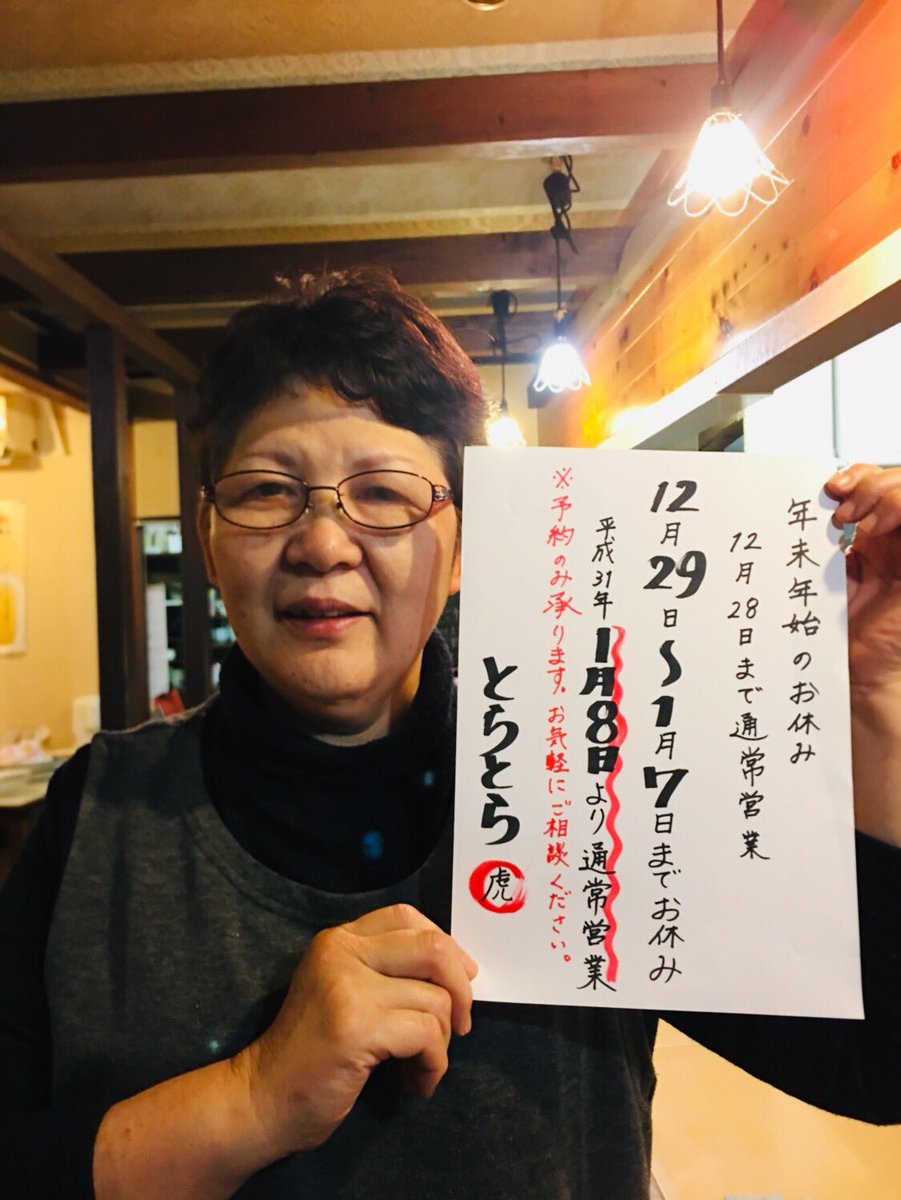 年末年始のお休み
12月28日まで通常営業
12月29日〜1月7日までお休み
平成31年1月8日より通常営業
※予約のみ承ります。お気軽にご相談ください。
とらとら
虎